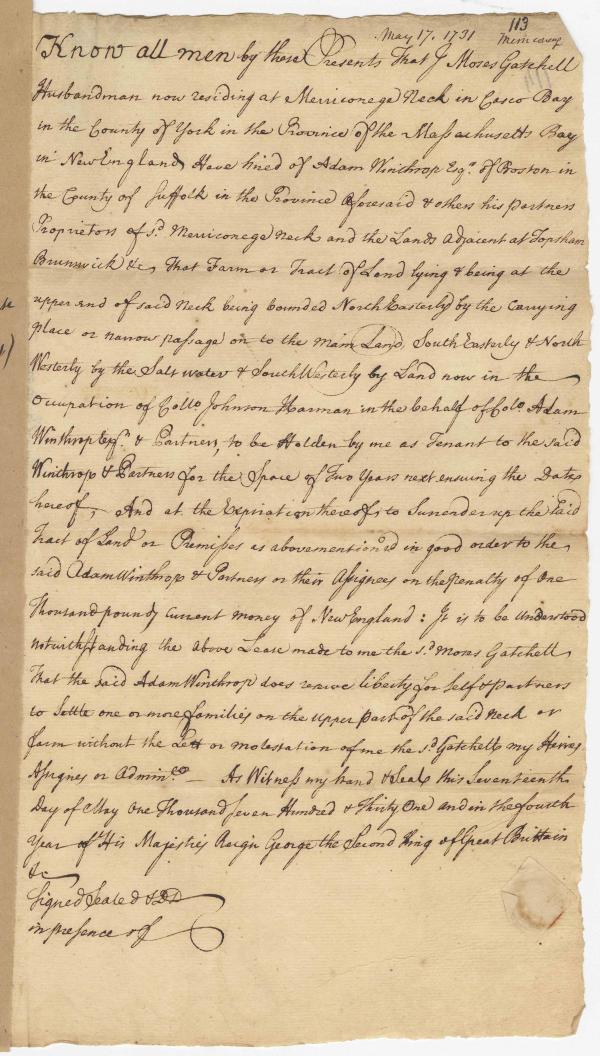 113
May 17, 1731
Know all men by these Presents That I Moses Gatchell
Husbandman now residing at Merriconege Neck in Casco Bay
in the County of York in the Province of the Massachusetts Bay
in New England Have hired of Adam Winthrop Esqr. of Boston in
the County of Suffolk in the Province aforesaid & others his partners
Proprietors of sd. Merriconege Neck and the Lands Adjacent at Topsham
Brunswick &c, That Farm or Tract of Land lying & being at the
upper end of said Neck being bounded North Easterly by the Carrying
place or narrow passage on to the main Land, South Easterly & North
Westerly by the Salt water & South Westerly by Land now in the
Occupation of Collo Johnson Harman in the behalf of Colo. Adam
Winthrop Esqr. & Partners, to be Holden by me as Tenant to the said
Winthrop & Partners for the Space of Two Years next ensuing the Date
hereof, And at the Expiration thereof, to Surrender up the said
Tract of Land or Premises as abovemention'd in good order to the
said Adam Winthrop & Partners or their Assignees on the Penalty of One
Thousand pounds Current money of New England: It is to be Understood
notwithstanding the above Lease made to me the sd. Moses Gatchell
That the said Adam Winthrop does reserve liberty for self & partners
to Settle one or more families on the upper part of the said Neck or
farm without the Lett or molestation of me the sd. Gatchell my Heires
Assignes or Admin.co As Witness my hand & Seale this Seventeenth
Day of May One Thousand seven Hundred & Thirty One and in the fourth
Year of His Majesties Reign George the Second King of Great Brittain
&c
Signed Seale d & DD
in presence of